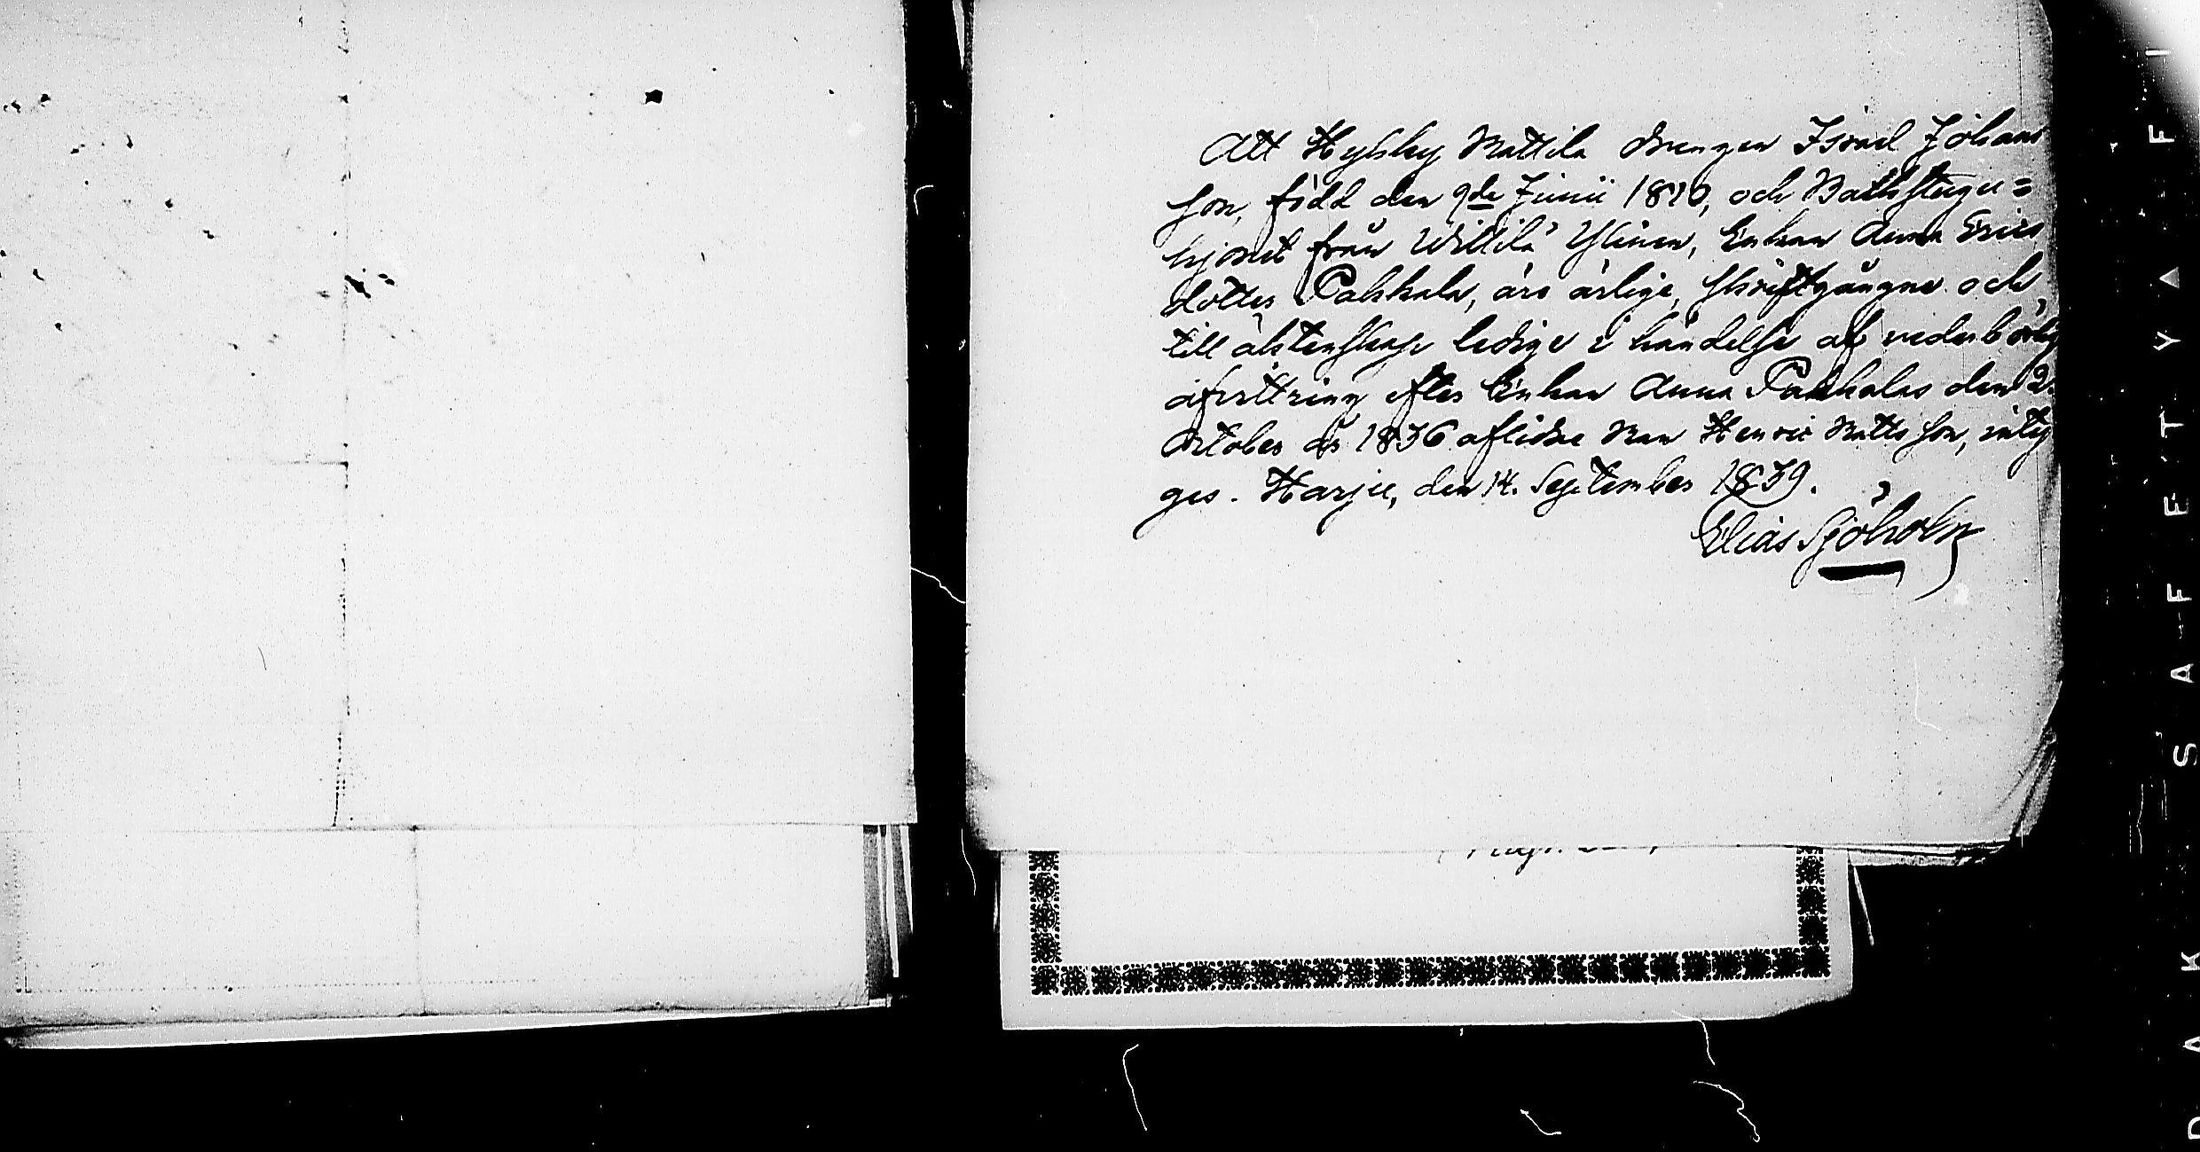 Att Hylsby Mattila drengen Israel Johans
son, född den 9de Junii 1810, och Badstugu=
hjonet från Wittilä Ylinen, Enkan Anna Erics
dotter Pakkala, äro ärlige, skriftgångne och
till äktenskap ledige i händelse af vederbörlig
afvittring efter Enkan Anna Pakkalas den 2.
October år 1836 aflidne Man Henric Mattsson, inty
gas. Harju, den 14. September 1839.
Elias Sjöholm
SAFETY FI